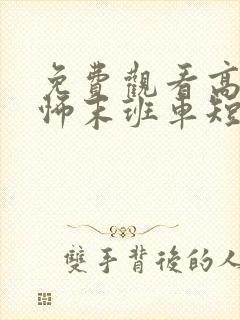 免費觀看高
師末班車短
雙手背後的人